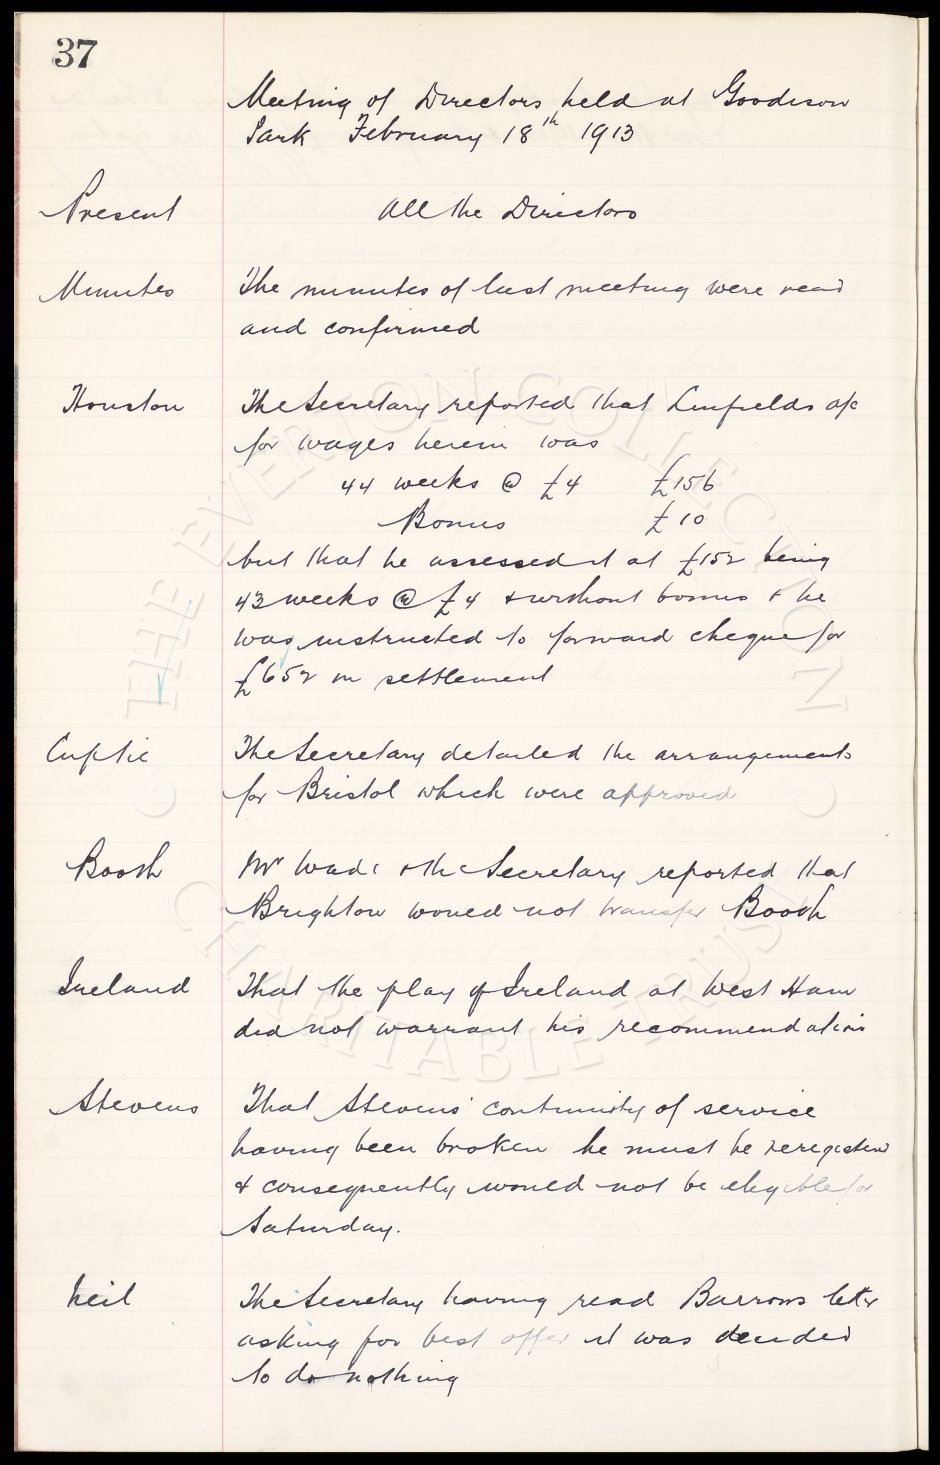 37
Meeting of Directors held at Goodison
Park February 18th 1913
Present All the Directors
Minutes The minutes of last meeting were read
and confirmed
Houston The Secretary reported that Linfields a/c
for wages herein was
44 weeks @ £4 £156
Bonus £10
but that he assessed it at £152 being
43 weeks @ £4 & without bonus & he
was instructed to forward cheque for
£652 in settlement
Cuptie The Secretary detailed the arrangements
for Bristol which were approved
Booth Mr Wade & the Secretary reported that
Brighton would not transfer Booth
Ireland That the play of Ireland at West Ham
did not warrant his recommendation
Stevens That Stevens' continuity of service
having been broken he must be reregistered
& consequently would not be eligible for
Saturday.
Neil The Secretary having read Barrows letter
asking for best offer it was decided
to do nothing
THE EVERTON COLLECTION
CHARITABLE TRUST